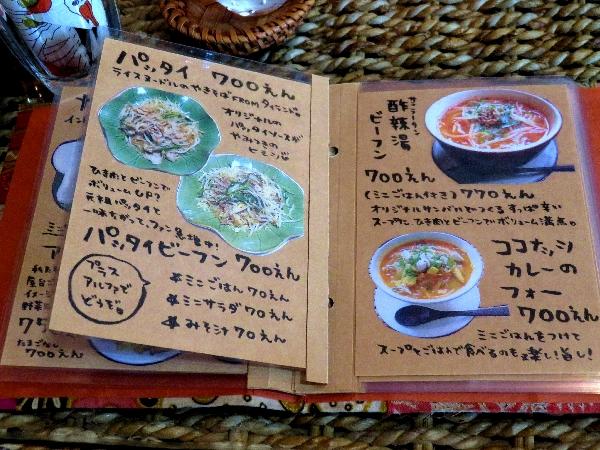 パッタイ 700えん
ライスヌードルのやきそばFROMタイランド。
オリジナルの
パッタイソースが
やみつきの
ヒミツ
ひき肉とビーフンで
ボリュームUP?
元祖パッタイと
一味ちがって、ファン急増中!
パッタイビーフン 700えん
プラス
アルファで
どうぞ。
ミニごはん 70えん
ミニサラダ 70えん
みそ汁 70えん
たまごなし
700えん
サンラータン
酸辣湯
ビーフン
700えん
(ミニごはん付き) 770えん
オリジナルサンバルでつくるすっぱ辛い
スープ。ひき肉とビーフンでボリューム満点。
ココナッツ
カレーの
フォー
700えん
ミニごはんをつけて
スープとごはんで食べるのも楽し!旨し!